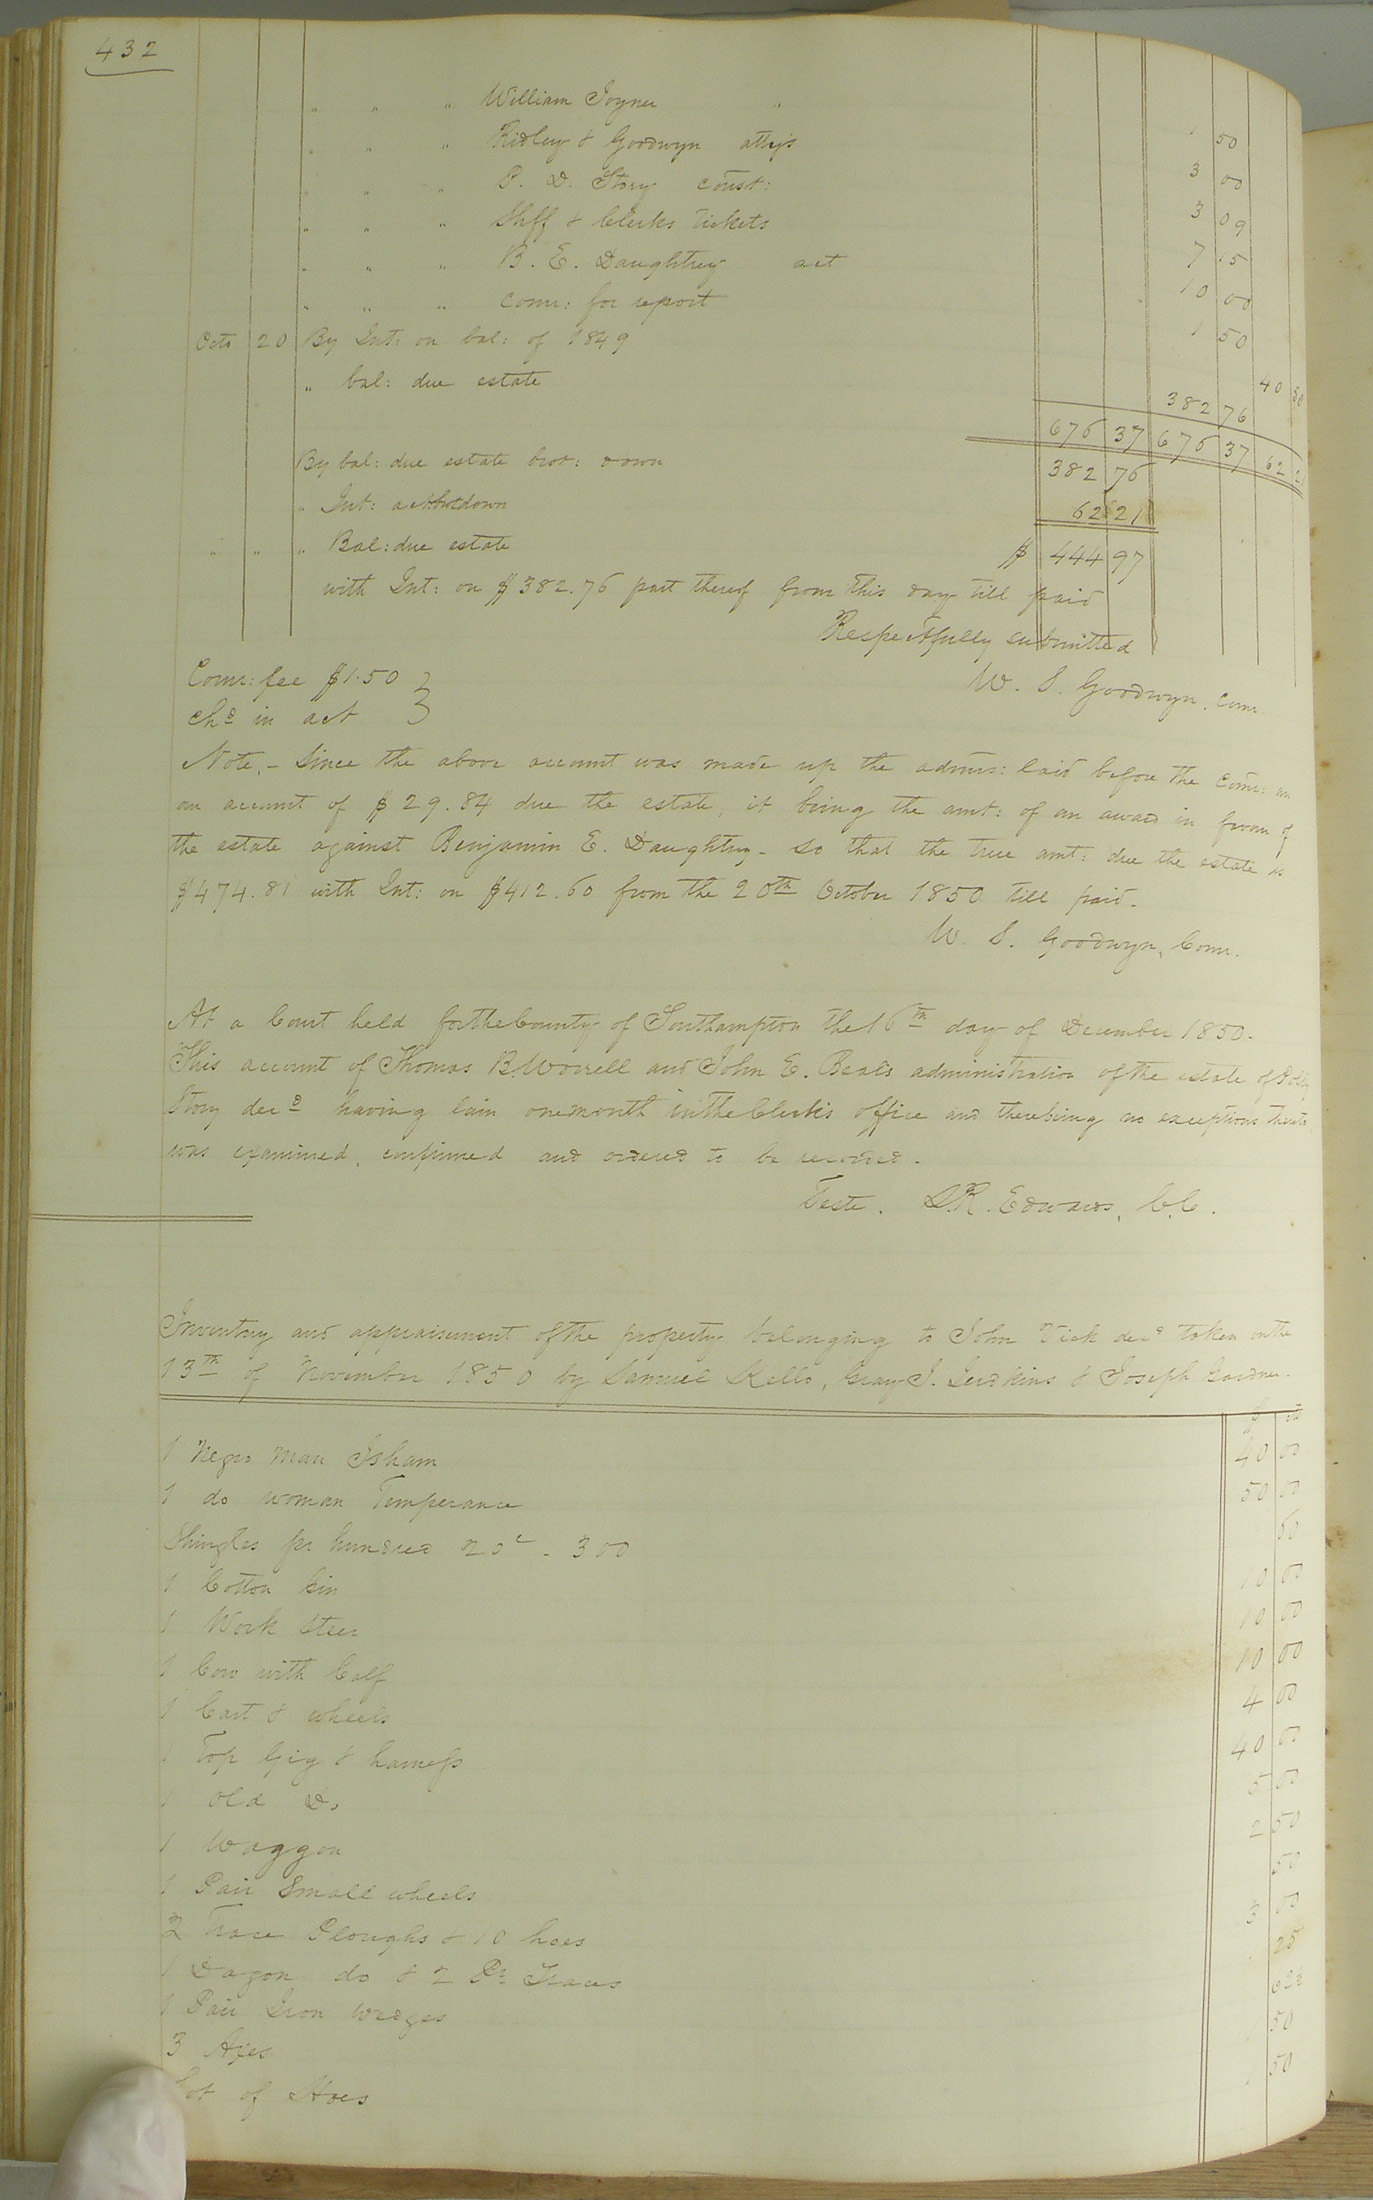 432
" " " William Joyner " 1 50
" " " Ridley & Goodwyn attys 3 00
" " " P. D. Story const: 3 09
" " " Shff & Clerks Tickets 7 15
" " " B. E. Daughtrey act 10 00
" " " Comr: for report 1 50
Octo 20 By Int: on bal: of 1849 40 50
" bal: due estate 382 76
676 37 676 37 62 21
By bal: due estate brot: down 382 76
" Int: act brot down 62 21
" " " Bal: due estate $ 444 97
with Int: on $382.76 part thereof from this day till paid
Respectfully submitted
W. S. Goodwyn, Comr
Comr: fee $1.50 }
chd in act }
Note. - Since the above account was made up the admrs: laid before the Comr: an
an account of $29.84 due the estate, it being the amt: of an award in favor of
the estate against Benjamin E. Daughtrey - so that the true amt: due the estate is
$474.81 with Int: on $412.60 from the 20th October 1850 till paid.
W. S. Goodwyn, Comr.
At a Court held for the County of Southampton the 16th day of December 1850.
This account of Thomas B. Worrell and John E. Beal's administration of the estate of Polly
Story decd having lain one month in the Clerk's office and there being no exceptions thereto
was examined, confirmed and ordered to be recorded.
Teste. L. R. Edwards, C.C.
Inventory and appraisement of the property belonging to John Vick decd taken on the
13th of November 1850 by Samuel Kello, Gray J. Judkins & Joseph Gardner.
$ cts
1 Negro Man Isham 40 00
1 do woman Temperance 50 00
Shingles pr hundred 20c - 300 60
1 Cotton Gin 10 00
1 Work Steer 10 00
1 Cow with Calf 10 00
1 Cart & wheels 4 00
1 Top Gig & harness 40 00
1 old Do 5 00
1 Waggon 2 50
1 Pair Small wheels 50
2 Trace Ploughs & 10 hoes 3 00
1 Dagon do & 2 Pr Traces 25
1 Pair Iron Wedges 62½
3 Axes 50
Lot of Hoes 1 50